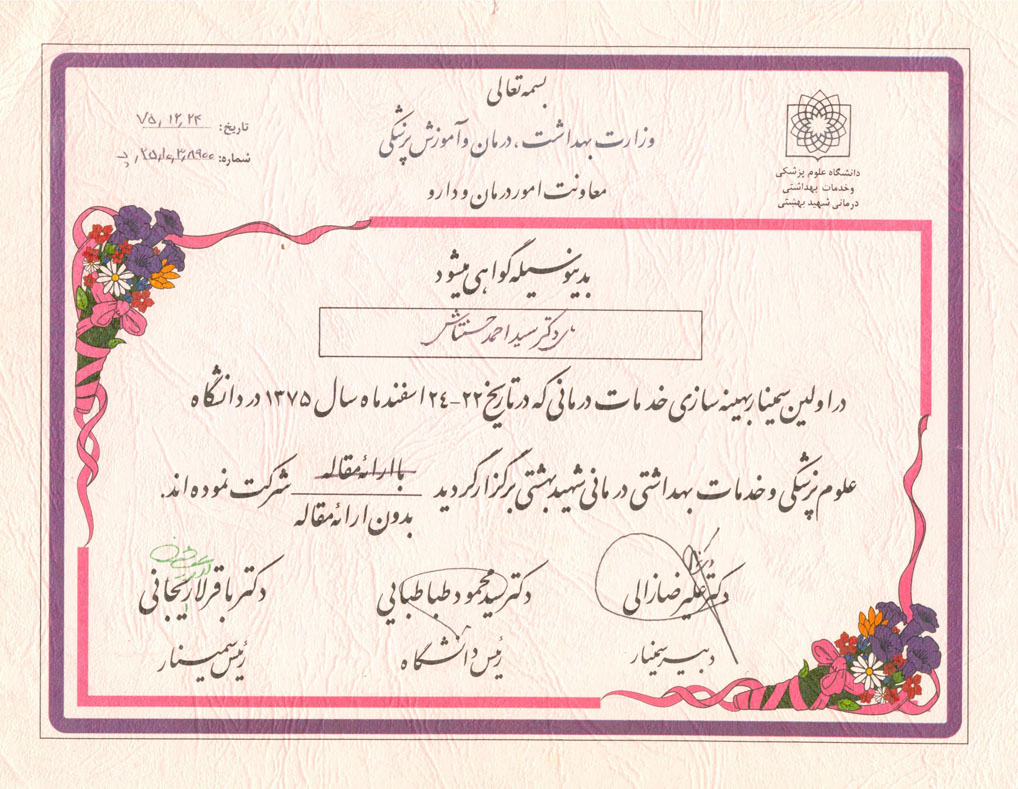 بسمه تعالی
وزارت بهداشت، درمان و آموزش پزشکی
معاونت امور درمان و دارو
دانشگاه علوم پزشکی
وخدمات بهداشتی
درمانی شهید بهشتی
تاریخ: ۷۵,۱۲,۲۴
شماره:
بدینوسیله گواهی میشود
دکتر سید احمد
در اولین سمینار بهینه سازی خدمات درمانی که در تاریخ ۲۲-۲٤ اسفند ماه سال ۱۳۷۵ در دانشگاه
علوم پزشکی و خدمات بهداشتی درمانی شهید بهشتی برگزار گردید با ارائه مقاله شرکت نموده اند.
بدون ارائه مقاله
دکتر علیرضا زالی
دبیر سمینار
دکتر سید محمود طباطبایی
رئیس دانشگاه
دکتر باقر لاریجانی
رئیس سمینار